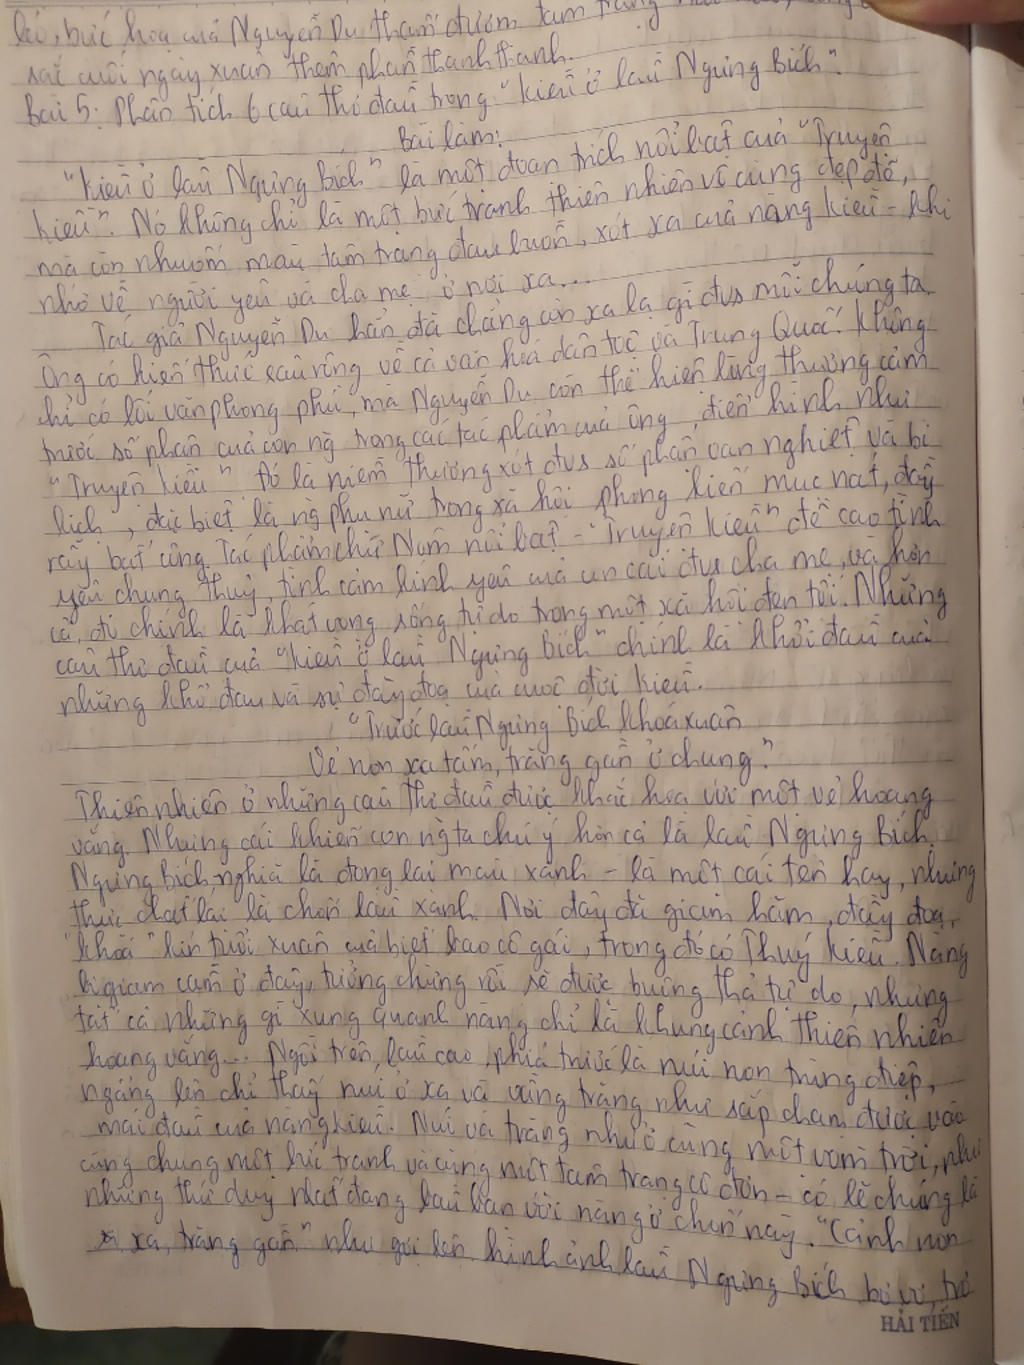 lời, bức hoạ của Nguyễn Du thấm đượm tâm trạng
sắc cuối ngày xuân thêm phần thanh thanh.
Bài 5: Phân tích 6 câu thơ đầu trong "Kiều ở lầu Ngưng Bích".
Bài làm:
"Kiều ở lầu Ngưng Bích" là một đoạn trích nổi bật của "Truyện
Kiều". Nó không chỉ là một bức tranh thiên nhiên vô cùng đẹp đẽ,
mà còn nhuốm màu tâm trạng đau buồn, xót xa của nàng Kiều - khi
nhớ về người yêu và cha mẹ ở nơi xa...
Tác giả Nguyễn Du hẳn đã chẳng còn xa lạ gì đvs mỗi chúng ta.
Ông có kiến thức sâu rộng về cả văn hoá dân tộc và Trung Quốc. Không
chỉ có lối văn phong phú, mà Nguyễn Du còn thể hiện lòng thương cảm
trước số phận của con ng trong các tác phẩm của ông, điển hình như
"Truyện Kiều". Đó là niềm thương xót đvs số phận oan nghiệt và bi
kịch, đặc biệt là ng phụ nữ trong xã hội phong kiến mục nát, đầy
rẫy bất công. Tác phẩm chữ Nôm nổi bật - "Truyện Kiều" đề cao tình
yêu chung thuỷ, tình cảm kính yêu của con cái đvs cha mẹ, và hơn
cả, đó chính là khát vọng sống tự do trong một xã hội đen tối. Những
câu thơ đầu của "Kiều ở lầu Ngưng Bích" chính là khởi đầu của
những khổ đau và sự đày đoạ của cuộc đời Kiều.
"Trước lầu Ngưng Bích khoá xuân
Vẻ non xa tấm, trăng gần ở chung."
Thiên nhiên ở những câu thơ đầu được khắc hoạ với một vẻ hoang
vắng. Nhưng cái khiến con ng ta chú ý hơn cả là lầu Ngưng Bích.
Ngưng Bích, nghĩa là đọng lại màu xanh - là một cái tên hay, nhưng
thực chất lại là chốn lầu xanh. Nơi đây đã giam hãm, đầy đoạ,
"khoá" kín tuổi xuân của biết bao cô gái, trong đó có Thuý Kiều. Nàng
bị giam cầm ở đây, tưởng chừng rồi sẽ được buông thả tự do, nhưng
tất cả những gì xung quanh nàng chỉ là khung cảnh thiên nhiên
hoang vắng... Ngồi trên lầu cao, phía trước là núi non trùng điệp,
ngẩng lên chỉ thấy núi ở xa và vầng trăng như sắp chạm được vào
mái đầu của nàng Kiều. Núi và trăng như ở cùng một vòm trời, như
cùng chung một bức tranh và cùng một tâm trạng cô đơn - có lẽ chúng là
những thứ duy nhất đang bầu bạn với nàng ở chốn này. "Cảnh non
xa, trăng gần" như gợi lên hình ảnh lầu Ngưng Bích bơ vơ, trơ
HẢI TIẾN